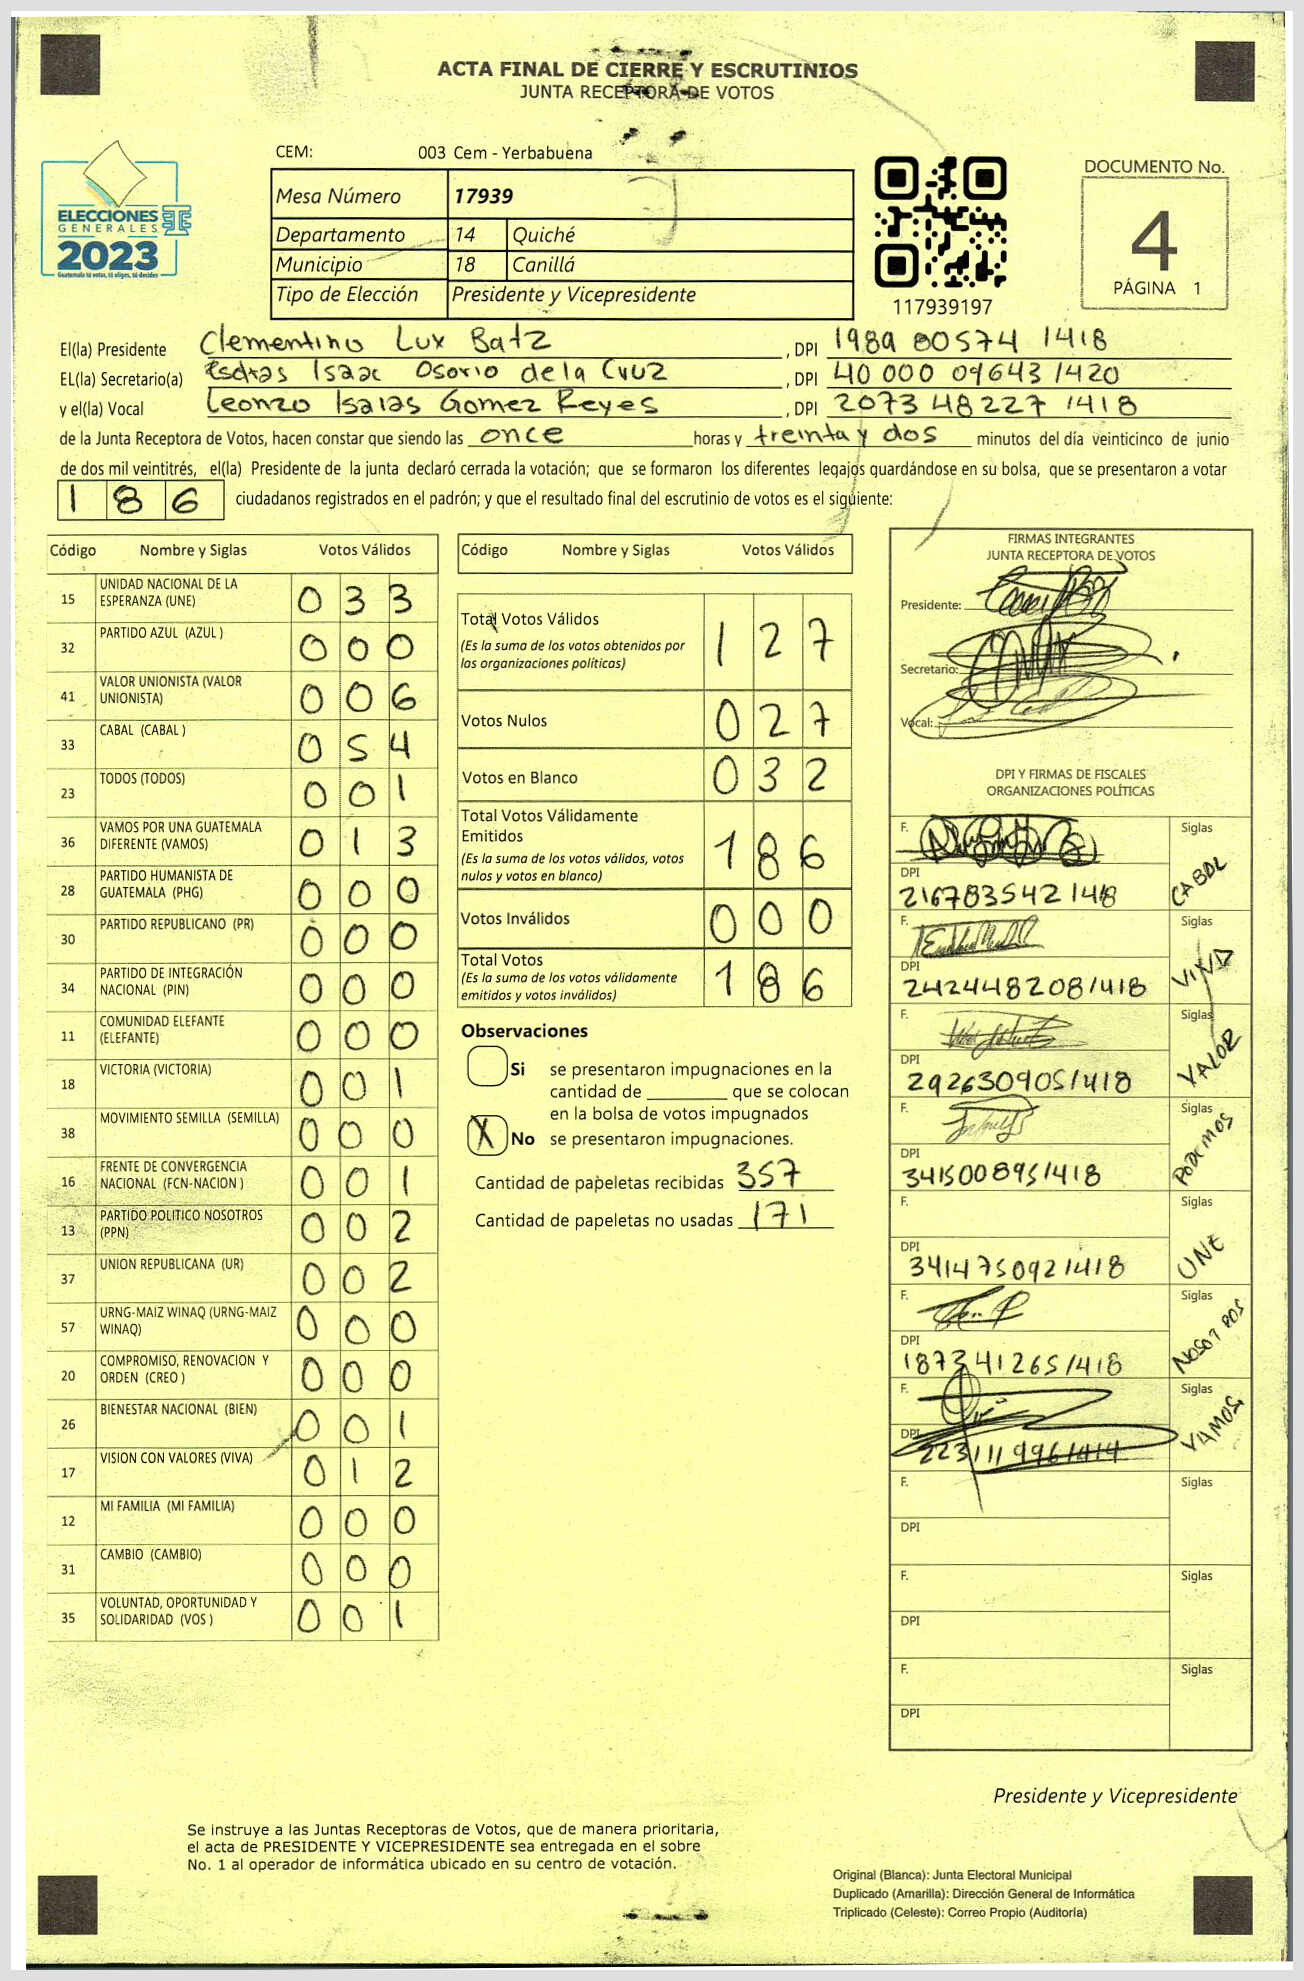 ACTA FINAL DE CIERRE Y ESCRUTINIOS
JUNTA RECEPTORA DE VOTOS
ELECCIONES
GENERALES
2023
Guatemala tú votas, tú eliges, tú decides
CEM: 003 Cem - Yerbabuena
Mesa Número 17939
Departamento 14 Quiché
Municipio 18 Canillá
Tipo de Elección Presidente y Vicepresidente
117939197
DOCUMENTO No.
4
PÁGINA 1
El(la) Presidente Clementino Lux Batz, DPI 1989 80574 1418
EL(la) Secretario(a) Esdras Isaac Osorio de la Cruz, DPI 40 000 09643 1420
y el(la) Vocal Leonzo Isaias Gomez Reyes, DPI 2073 48227 1418
de la Junta Receptora de Votos, hacen constar que siendo las once horas y treinta y dos minutos del día veinticinco de junio
de dos mil veintitrés, el(la) Presidente de la junta declaró cerrada la votación; que se formaron los diferentes legajos guardándose en su bolsa, que se presentaron a votar
186 ciudadanos registrados en el padrón; y que el resultado final del escrutinio de votos es el siguiente:
Código Nombre y Siglas Votos Válidos
15 UNIDAD NACIONAL DE LA ESPERANZA (UNE) 033
32 PARTIDO AZUL (AZUL ) 000
41 VALOR UNIONISTA (VALOR UNIONISTA) 006
33 CABAL (CABAL ) 054
23 TODOS (TODOS) 001
36 VAMOS POR UNA GUATEMALA DIFERENTE (VAMOS) 013
28 PARTIDO HUMANISTA DE GUATEMALA (PHG) 000
30 PARTIDO REPUBLICANO (PR) 000
34 PARTIDO DE INTEGRACIÓN NACIONAL (PIN) 000
11 COMUNIDAD ELEFANTE (ELEFANTE) 000
18 VICTORIA (VICTORIA) 001
38 MOVIMIENTO SEMILLA (SEMILLA) 000
16 FRENTE DE CONVERGENCIA NACIONAL (FCN-NACION ) 001
13 PARTIDO POLITICO NOSOTROS (PPN) 002
37 UNION REPUBLICANA (UR) 002
57 URNG-MAIZ WINAQ (URNG-MAIZ WINAQ) 000
20 COMPROMISO, RENOVACION Y ORDEN (CREO ) 000
26 BIENESTAR NACIONAL (BIEN) 001
17 VISION CON VALORES (VIVA) 012
12 MI FAMILIA (MI FAMILIA) 000
31 CAMBIO (CAMBIO) 000
35 VOLUNTAD, OPORTUNIDAD Y SOLIDARIDAD (VOS ) 001
Código Nombre y Siglas Votos Válidos
Total Votos Válidos 127
(Es la suma de los votos obtenidos por
las organizaciones políticas)
Votos Nulos 027
Votos en Blanco 032
Total Votos Válidamente
Emitidos 186
(Es la suma de los votos válidos, votos
nulos y votos en blanco)
Votos Inválidos 000
Total Votos 186
(Es la suma de los votos válidamente
emitidos y votos inválidos)
Observaciones
Si se presentaron impugnaciones en la
cantidad de ________ que se colocan
en la bolsa de votos impugnados
X No se presentaron impugnaciones.
Cantidad de papeletas recibidas 357
Cantidad de papeletas no usadas 171
FIRMAS INTEGRANTES
JUNTA RECEPTORA DE VOTOS
Presidente:
Secretario:
Vocal:
DPI Y FIRMAS DE FISCALES
ORGANIZACIONES POLÍTICAS
F. Siglas CABAL
DPI 216783542 1418
F. Siglas VIVA
DPI 2424482081418
F. Siglas VALOR
DPI 2926309051418
F. Siglas PODEMOS
DPI 3415008951418
F. Siglas UNE
DPI 3414750921418
F. Siglas NOSOTROS
DPI 1873412651418
F. Siglas VAMOS
DPI 2231119961414
F. Siglas
DPI
F. Siglas
DPI
F. Siglas
DPI
Presidente y Vicepresidente
Se instruye a las Juntas Receptoras de Votos, que de manera prioritaria,
el acta de PRESIDENTE Y VICEPRESIDENTE sea entregada en el sobre
No. 1 al operador de informática ubicado en su centro de votación.
Original (Blanca): Junta Electoral Municipal
Duplicado (Amarilla): Dirección General de Informática
Triplicado (Celeste): Correo Propio (Auditoría)